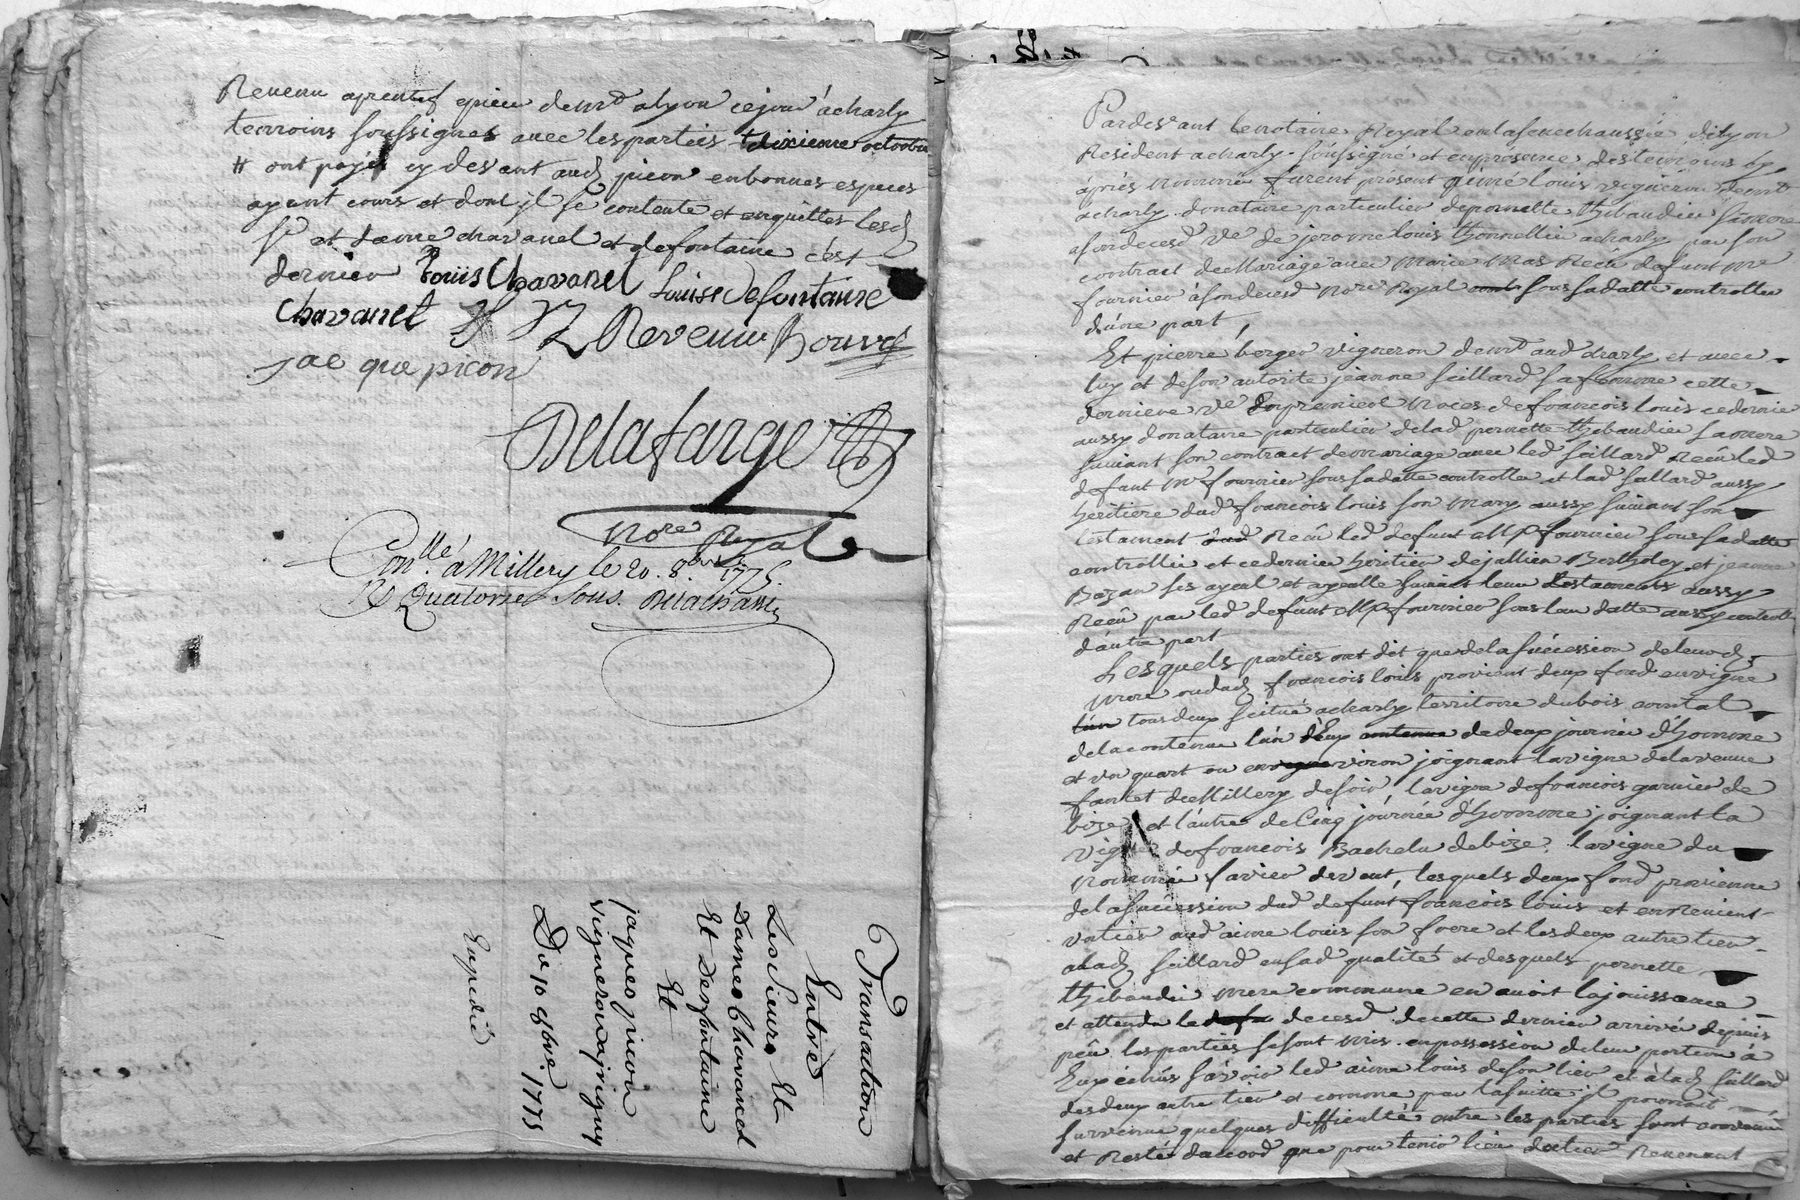 Revenu aprentif epicie dem.^t alyon cejour acharly
temoins soussignes avec les parties dixieme octobre
# ont payé cy devant aud picon enbonnes especes
ayant cours et dont jl se contente et enquittes lesd
s.^r et dame chavanel et defontaine c'est
dernier Louis Chavanel Louise defontaine
Chavanel Revenu Bouvd
jac que picon
Delafarge
No.^re Royal
Con.^llé à Millery le 20. 8.^bre 1775.
R Quatorze sous. Delachant
Transaction
Entre
Les Sieurs Et
Dames Chavanel
Et Desfontaine
Et
jaques picon
vigneron a jrigny
Du 10 8bre. 1775
Expedié
Pardevant lenotaire Royal en lasenechaussée de Lyon
Resident acharly soussigné et enpresence des temoins cy
áprés nommé furent présent aimé Louis vigneron dem.^t
acharly. donataire particulier de pernette thibaudier sa mere
asondeced v.^e de jerome Louis thonnellier acharly par son
contract de Mariage avec Marie Mas Recu defunt M.^e
fournier ásondeced No.^re Royal sous sadatte controllée
d'úne part,
Et pierre berger vigneron dem.^t aud charly et avec
luy et deson autorité jeanne Saillard safemme cette
derniere v.^e enpremiere Noces de francois Louis cedernier
aussy donataire particulier delad pernette thibaudier samere
suivant son contract demariage avec led Saillard Recú led
defunt M.^e fournier sous sadatte controllé et lad Saillard aussy
heritiere dud francois Louis son mary aussy suivant son
testament Recú led defunt M.^e fournier sous sadatte
controllée et cedernier heritier de jullien Bertholey et jeanne
Bazan ses ayeul et ayeulle suivant leur testaments aussy
Recú par led defunt M.^e fournier sous leur datte aussy controllé
dáutre part
Lesquels parties ont dit que de la súccession deleurd
frere oudad francois Louis provient deux fond en vigne
tous deux scitué acharly territoire du bois comtal
dela contenue l'ún d'Eux de deux journée d'homme
et un quart ou environ joignant la vigne de la veuve
fantet de Millery de soir, la vigne de francois garnier de
bize, et l'áutre de Cinq journée d'homme joignant la
vigne de francois Bachelu debize. la vigne du
nommée favier devent, lesquels deux fond provienne
dela súccession dud defunt francois Louis et en Revient
un tier aud aimé Louis son frere et les deux autre tier
alad Saillard ensad qualité et desquels pernette
thibaudier mere commune en avoit lajouissance
et attendu le deced decette derniere arrivée depuis
peú les parties se sont mis enpossession deleur portion á
Eux échús s'avoir led aimé Louis deson tier et á lad Saillard
des deux autre tier et comme par la suitte jl pourroit
survenir quelques difficulté entre les parties sont convenú
et Resté daccord que pour tenir lieu dutier Revenant